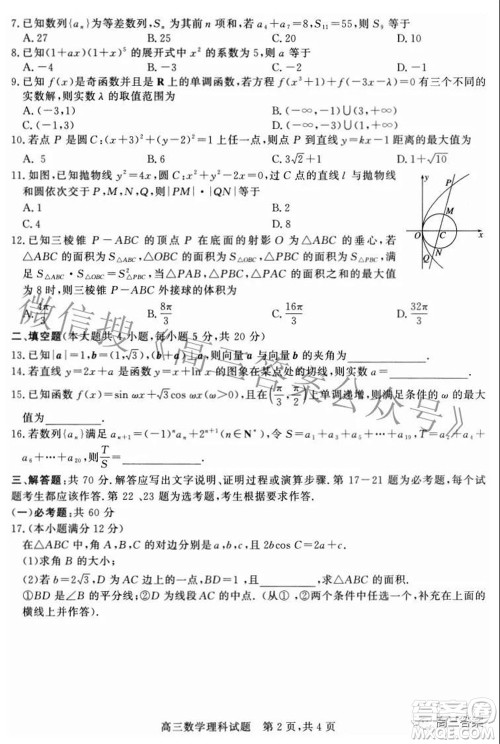 7.已知数列{aₙ}为等差数列,其前n项和为Sₙ,若a₄+a₇=8,S₁₁=55,则S₅等于
A.27 B.25 C.20 D.10
8.已知(1+ax)(1+x)⁵的展开式中x²的系数为5,则a等于
A.-4 B.-3 C.-2 D.-1
9.已知f(x)是奇函数并且是R上的单调函数,若方程f(x³+1)+f(-3x-λ)=0有三个不同的
实数解,则实数λ的取值范围为
A.(-1,3) B.(-∞,-1)∪(3,+∞)
C.(-3,1) D.(-∞,-3)∪(1,+∞)
10.若点P是圆C:(x+3)²+(y-2)²=1上任一点,则点P到直线y=kx-1距离的最大值为
A. 5 B.6 C.3√2+1 D.1+√10
11.如图,已知抛物线y²=4x,圆C:x²+y²-2x=0,过C点的直线l与抛物线
和圆依次交于P,M,N,Q,则|PM|·|NQ|等于
A.1 B.2
C.4 D.8
y P M O C x N Q
12.已知三棱锥P-ABC的顶点P在底面的射影O为△ABC的垂心,若
△ABC的面积为S△ABC,△OBC的面积为S△OBC,△PBC的面积为S△PBC,满
足S△ABC·S△OBC=S²△PBC,当△PAB,△PBC,△PAC的面积之和的最大值
为8时,则三棱锥P-ABC外接球的体积为
A.4π/3 B.8π/3 C.16π/3 D.32π/3
二、填空题(本大题共4小题,每小题5分,共20分)
13.已知|a|=1,b=(1,√3),(b+a)⊥a,则向量a与向量b的夹角为________.
14.若直线y=2x+a是函数y=x+ln x的图象在某点处的切线,则实数a=________.
15.已知函数f(x)=sin ωx+√3cos ωx(ω>0),且在(π/3,π/2)上单调递减,则满足条件的ω的最大
值为________.
16.若数列{aₙ}满足aₙ₊₁=(-1)ⁿaₙ+2ⁿ⁺¹(n∈N*),令S=a₁+a₃+a₅+…+a₁₉,T=a₂+a₄+
a₆+…+a₂₀,则T/S=________.
三、解答题:共70分.解答应写出文字说明、证明过程或演算步骤.第17-21题为必考题,每个试
题考生都应该作答.第22、23题为选考题,考生根据要求作答.
(一)必考题:共60分
17.(本小题满分12分)
在△ABC中,角A,B,C的对边分别为a,b,c,且2bcos C=2a+c.
(1)求角B的大小;
(2)若b=2√3,D为AC边上的一点,BD=1,且________,求△ABC的面积.
①BD是∠B的平分线;②D为线段AC的中点.(从①,②两个条件中任选一个,补充在上面的
横线上并作答).
高三数学理科试题 第2页,共4页
微信搜《高三答案公众号》
高三答案